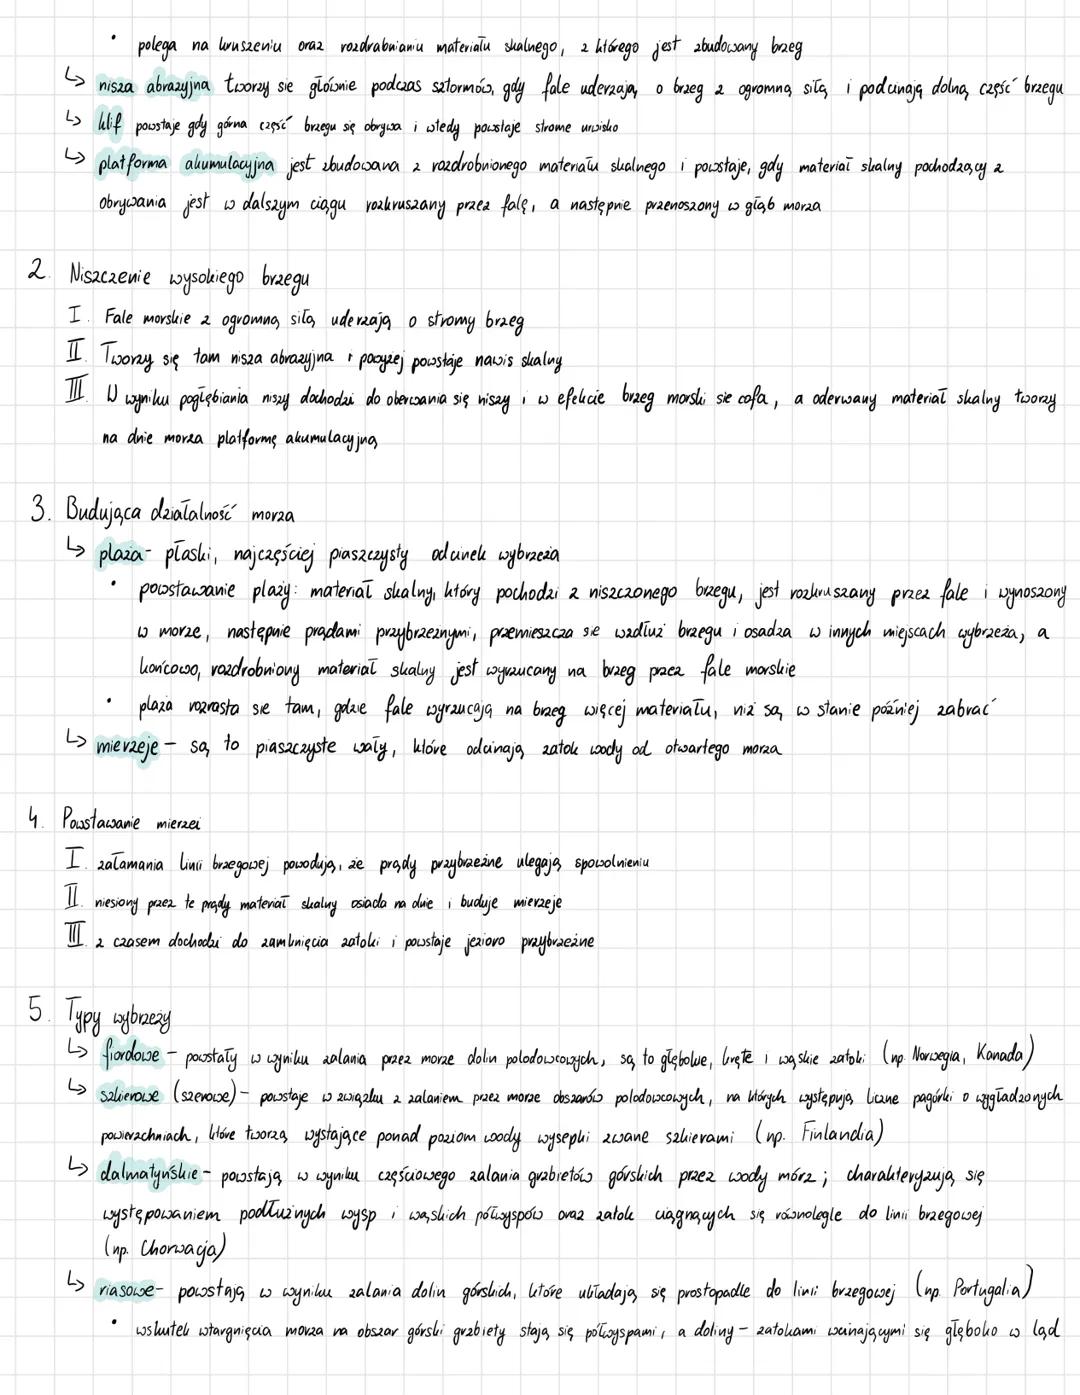 • polega na kruszeniu oraz rozdrabnianiu materiału skalnego, z którego jest zbudowany brzeg
↳ nisza abrazyjna tworzy sie głównie podczas sztormów, gdy fale uderzają o brzeg z ogromną siłą i podcinają dolną część brzegu
↳ klif powstaje gdy górna część brzegu się obrywa i wtedy powstaje strome urwisko
↳ platforma akumulacyjna jest zbudowana z rozdrobnionego materiału skalnego i powstaje, gdy materiał skalny pochodzący z
obrywania jest w dalszym ciągu rozkruszany przez falę, a następnie przenoszony w głąb morza
2. Niszczenie wysokiego brzegu
I. Fale morskie z ogromną siłą uderzają o stromy brzeg
II. Tworzy się tam nisza abrazyjna i powyżej powstaje nawis skalny
III. W wyniku pogłębiania niszy dochodzi do oberwania się niszy i w efekcie brzeg morski sie cofa, a oderwany materiał skalny tworzy
na dnie morza platformę akumulacyjną
3. Budująca działalność morza
↳ plaża - płaski, najczęściej piaszczysty odcinek wybrzeża
• powstawanie plaży: materiał skalny, który pochodzi z niszczonego brzegu, jest rozkruszany przez fale i wynoszony
w morze, następnie prądami przybrzeżnymi, przemieszcza sie wzdłuż brzegu i osadza w innych miejscach wybrzeża, a
końcowo, rozdrobniony materiał skalny jest wyrzucany na brzeg przez fale morskie
• plaża rozrasta sie tam, gdzie fale wyrzucają na brzeg więcej materiału, niż są w stanie później zabrać
↳ mierzeje - są to piaszczyste wały, które odcinają zatok wody od otwartego morza
4. Powstawanie mierzei
I. załamania linii brzegowej powodują, że prądy przybrzeżne ulegają spowolnieniu
II. niesiony przez te prądy materiał skalny osiada na dnie i buduje mierzeje
III. z czasem dochodzi do zamknięcia zatoki i powstaje jezioro przybrzeżne
5. Typy wybrzeży
↳ fiordowe - powstały w wyniku zalania przez morze dolin polodowcowych, są to głębokie, kręte i wąskie zatoki (np. Norwegia, Kanada)
↳ szkierowe (szerowe) - powstaje w związku z zalaniem przez morze obszarów polodowcowych, na których występują liczne pagórki o wygładzonych
powierzchniach, które tworzą wystające ponad poziom wody wysepki zwane szkierami (np. Finlandia)
↳ dalmatyńskie - powstają w wyniku częściowego zalania grzbietów górskich przez wody mórz; charakteryzują się
występowaniem podłużnych wysp i wąskich półwyspów oraz zatok ciągnących się równolegle do linii brzegowej
(np. Chorwacja)
↳ riasowe - powstają w wyniku zalania dolin górskich, które układają się prostopadle do linii brzegowej (np. Portugalia)
• wskutek wtargnięcia morza na obszar górski grzbiety stają się półwyspami, a doliny - zatokami wcinającymi się głęboko w ląd